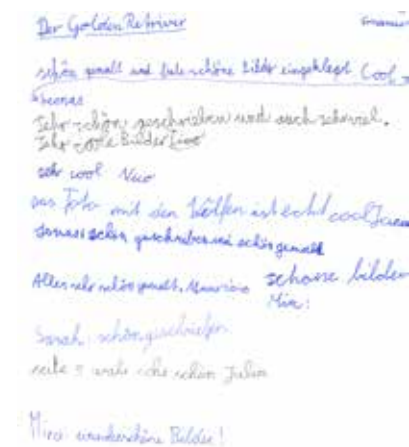 Der Golden Retriver
schön gemalt und viele schöne Bilder eingeklept Cool
Sehr schön geschrieben und auch sehr viel.
Sehr coole Bilder Lino
sehr cool Nico
das Foto mit den Wölfen ist echt cool
schön geschrieben und schön gemalt
Alles sehr schön gemalt. Maurizio schöne bilder
Mia:
Sarah: schön geschriefen
seite 5 sehr schön Julia
Mira: wunderschöne Bilder!